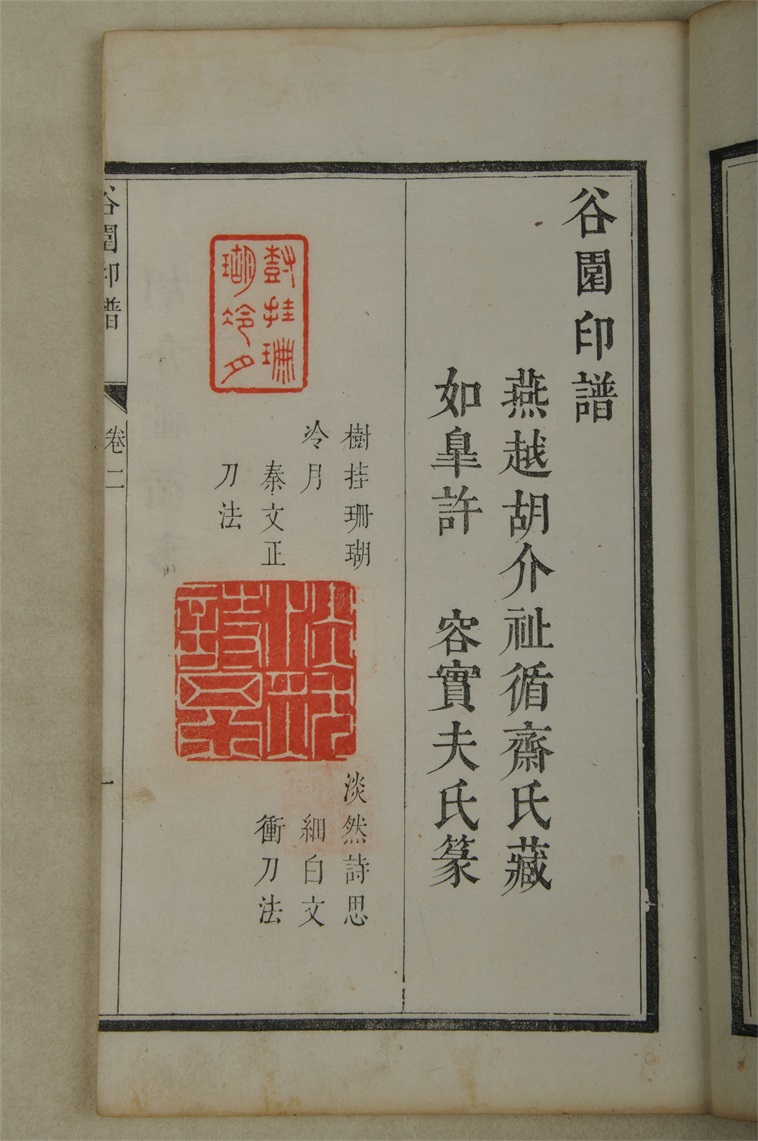 谷園印譜
燕越胡介祉循齋氏藏
如臯許　容實夫氏篆
樹挂珊瑚泠月
樹挂珊瑚
冷月
秦文正
刀法
淡然詩思
淡然詩思
細白文
衝刀法
谷園印譜
卷二
一